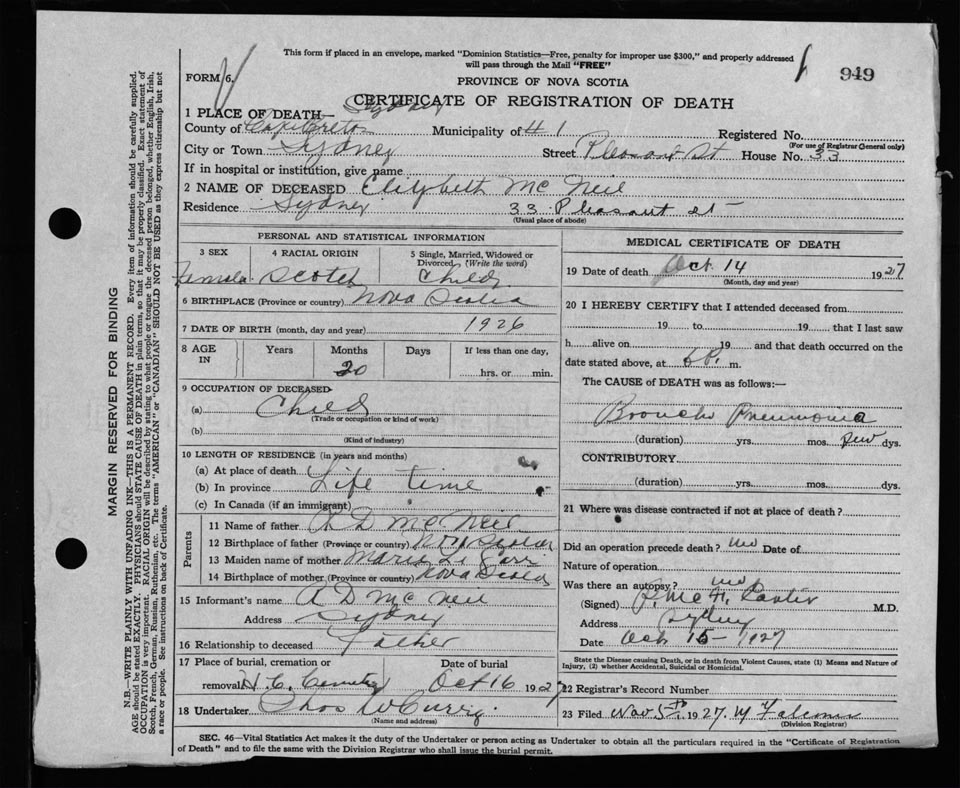 This form if placed in an envelope, marked "Dominion Statistics—Free, penalty for improper use $300," and properly addressed
will pass through the Mail "FREE"
FORM 6.
949
PROVINCE OF NOVA SCOTIA
CERTIFICATE OF REGISTRATION OF DEATH
1 PLACE OF DEATH— Sydney
County of Cape Breton Municipality of # 1 Registered No.
(For use of Registrar General only)
City or Town Sydney Street Pleasant St House No. 33
If in hospital or institution, give name
2 NAME OF DECEASED Elizybeth Mc Neil
Residence Sydney 33 Pleasant st
(Usual place of abode)
PERSONAL AND STATISTICAL INFORMATION
3 SEX 4 RACIAL ORIGIN 5 Single, Married, Widowed or
Divorced (Write the word)
Female Scotch Child
6 BIRTHPLACE (Province or country) Nova Scotia
7 DATE OF BIRTH (month, day and year) 1926
8 AGE IN Years Months Days If less than one day,
20 hrs. or min.
9 OCCUPATION OF DECEASED
(a) Child
(Trade or occupation or kind of work)
(b)
(Kind of industry)
10 LENGTH OF RESIDENCE (in years and months)
(a) At place of death
(b) In province Life time
(c) In Canada (if an immigrant)
Parents
11 Name of father A D Mc Neil
12 Birthplace of father (Province or country) Nova Scotia
13 Maiden name of mother
14 Birthplace of mother (Province or country) Nova Scotia
15 Informant's name A D Mc Neil
Address Sydney
16 Relationship to deceased Father
17 Place of burial, cremation or Date of burial
removal H. C. Cemetry Oct 16 1927
18 Undertaker Thos W Curry
(Name and address)
MEDICAL CERTIFICATE OF DEATH
19 Date of death Oct 14 1927
(Month, day and year)
20 I HEREBY CERTIFY that I attended deceased from
19 to 19 that I last saw
h alive on 19 and that death occurred on the
date stated above, at 6 P. m.
The CAUSE of DEATH was as follows:—
Broncho Pneumonia
(duration) yrs. mos. few dys.
CONTRIBUTORY
(duration) yrs. mos. dys.
21 Where was disease contracted if not at place of death?
Did an operation precede death? no Date of
Nature of operation
Was there an autopsy? no
(Signed) M.D.
Address Sydney
Date Oct 15— 1927
State the Disease causing Death, or in death from Violent Causes, state (1) Means and Nature of
Injury, (2) whether Accidental, Suicidal or Homicidal.
22 Registrar's Record Number
23 Filed Nov 5th, 1927.
(Division Registrar)
SEC. 46—Vital Statistics Act makes it the duty of the Undertaker or person acting as Undertaker to obtain all the particulars required in the "Certificate of Registration
of Death" and to file the same with the Division Registrar who shall issue the burial permit.
MARGIN RESERVED FOR BINDING
N.B.—WRITE PLAINLY WITH UNFADING INK—THIS IS A PERMANENT RECORD. Every item of information should be carefully supplied.
AGE should be stated EXACTLY. PHYSICIANS should STATE CAUSE OF DEATH in plain terms, so that it may be properly classified. Exact statement of
OCCUPATION is very important. RACIAL ORIGIN will be described by stating to what people or tongue the deceased person belonged, whether English, Irish,
Scotch, French, German, Russian, Ruthenian, etc. The terms "AMERICAN" or "CANADIAN" SHOULD NOT BE USED as they express citizenship but not
a race or people. See instructions on back of Certificate.